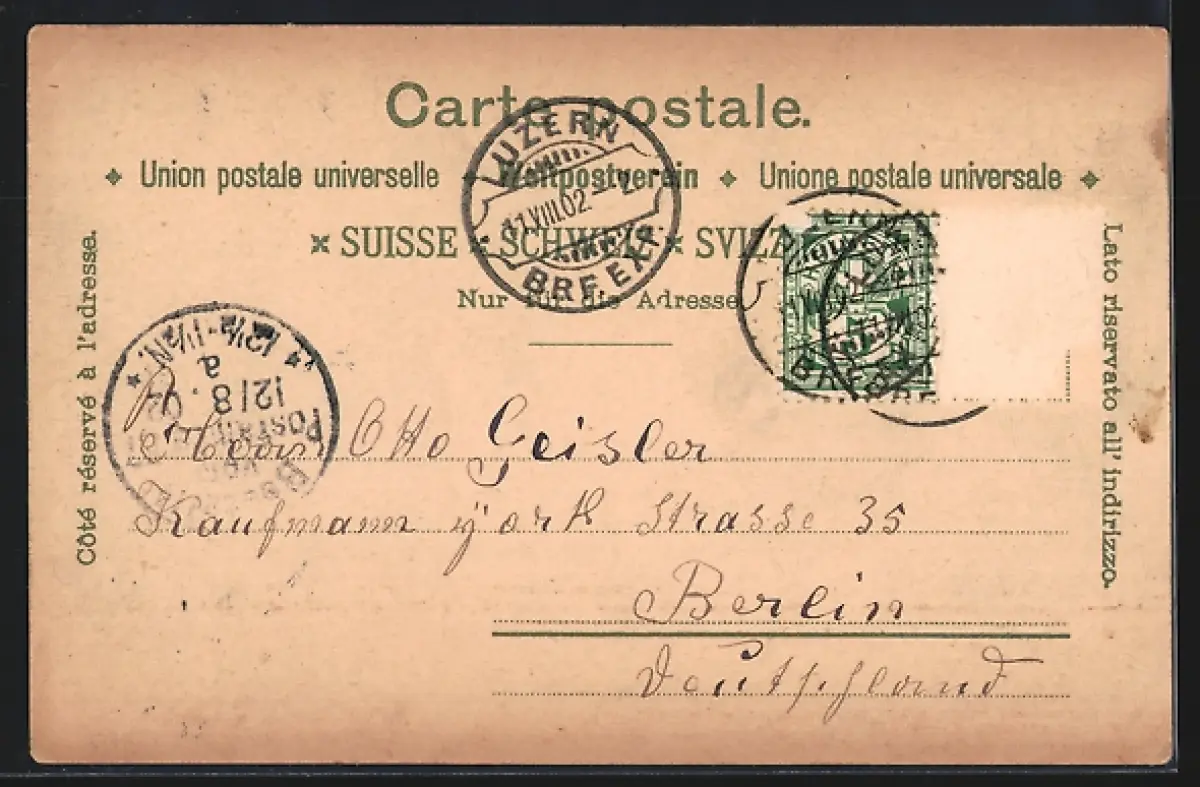 Carte postale.
Union postale universelle Weltpostverein Unione postale universale
SUISSE SCHWEIZ
Nur für die Adresse
Côté réservé à l'adresse.
Lato riservato all' indirizzo.
LUZERN
11.VIII.02.
BRF. EXP.
12½-1½N.
a
12/8.
02
Otto Geisler
Kaufmann York Strasse 35
Berlin
Deutschland